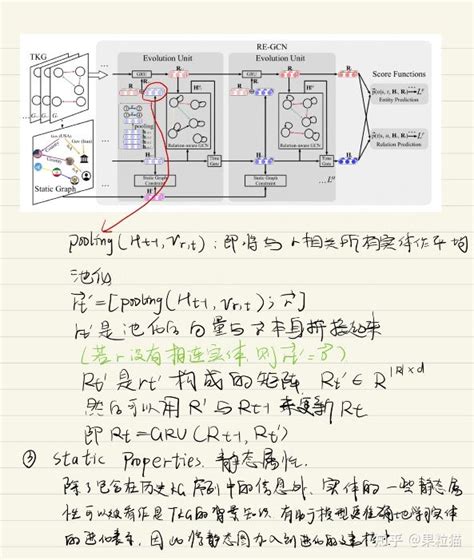 RE-GCN
TKG
Evolution Unit
Evolution Unit
Score Functions
GRU
GRU
Entity Prediction
pooling
Relation Prediction
Relation-aware GCN
Relation-aware GCN
Time Gate
Time Gate
Static Graph
Static Graph Constraint
Static Graph Constraint
pooling(Ht-1, Vr,t): 即将与r相关所有实体作平均
池化
rt' = [pooling(Ht-1, Vr,t); r]
rt'是池化后向量与r本身拼接起来
(若r没有相连实体则rt'=0)
Rt'是rt'构成的矩阵 Rt' ∈ R^|R|×d
然后可以用R'与Rt-1来更新Rt
即 Rt = GRU(Rt-1, Rt')
③ static Properties 静态属性.
除了包含在历史KG序列中的信息外, 实体的一些静态属
性可以被看作是TKG的背景知识, 有助于模型更准确地学习实体
的进化表示, 因此将静态图加入到进化的建模中
知乎 @果粒猫